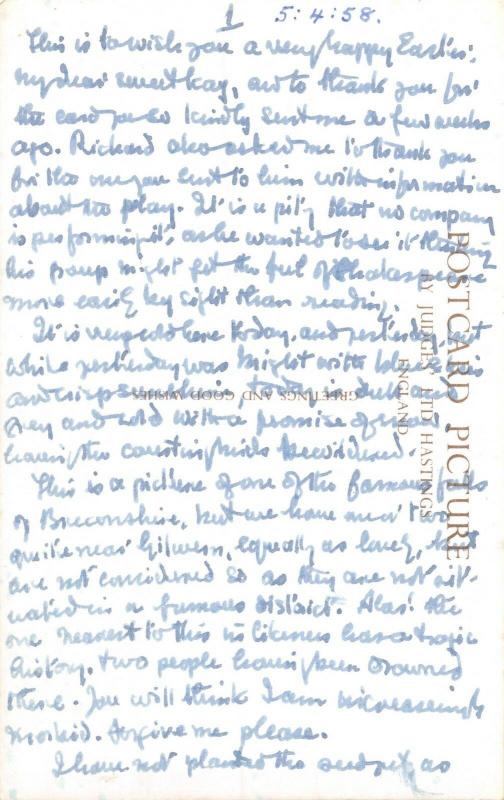 1 5:4:58.
This is to wish you a very happy Easter,
my dear sweet Kay, and to thank you for
the card you so kindly sent me a few weeks
ago. Richard also asked me to thank you
for the one you sent to him with information
about the play. It is a pity that no company
is performing it, as he wanted to see it thinking
his group might get the feel of Shakespeare
more easily by sight than reading.
It is very cold here today, and yesterday, but
while yesterday was bright with blue skies
and crisp sunshine, today is dull and
grey and cold with a promise of snow
having the courting birds bewildered.
This is a picture of one of the famous falls
of Breconshire, but we have one or two
quite near Gilwern, equally as lovely, that
are not considered so as they are not sit-
uated in a famous district. Alas! the
one nearest to this in likeness has a tragic
history, two people having been drowned
there. You will think I am increasingly
morbid. Forgive me please.
I have not planted the seed yet, as
POSTCARD PICTURE
BY JUDGES LTD HASTINGS
ENGLAND
GREETINGS AND GOOD WISHES